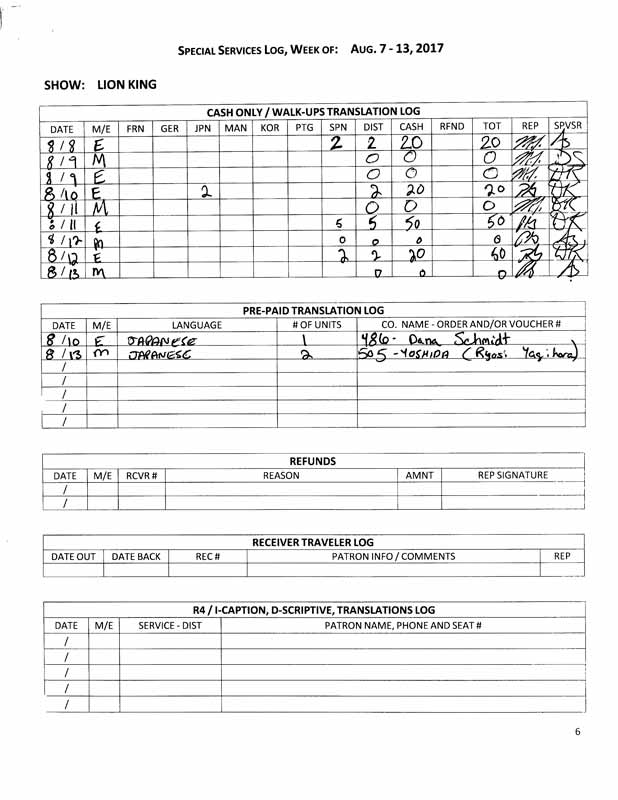 SPECIAL SERVICES LOG, WEEK OF: AUG. 7 - 13, 2017
SHOW: LION KING
CASH ONLY / WALK-UPS TRANSLATION LOG
DATE M/E FRN GER JPN MAN KOR PTG SPN DIST CASH RFND TOT REP SPVSR
8/8 E 2 2 20 20
8/9 M 0 0 0 DS
8/9 E 0 0 0
8/10 E 2 2 20 20
8/11 M 0 0 0
8/11 E 5 5 50 50
8/12 M 0 0 0 0
8/12 E 2 2 20
8/13 M 0 0 0
PRE-PAID TRANSLATION LOG
DATE M/E LANGUAGE # OF UNITS CO. NAME - ORDER AND/OR VOUCHER #
8/10 E JAPANESE 1 486- Dana Schmidt
8/13 M JAPANESE 2 505 -YOSHIDA (Ryosi Yagihara)
/
/
/
/
/
REFUNDS
DATE M/E RCVR # REASON AMNT REP SIGNATURE
/
/
RECEIVER TRAVELER LOG
DATE OUT DATE BACK REC # PATRON INFO / COMMENTS REP
R4 / I-CAPTION, D-SCRIPTIVE, TRANSLATIONS LOG
DATE M/E SERVICE - DIST PATRON NAME, PHONE AND SEAT #
/
/
/
/
/
6